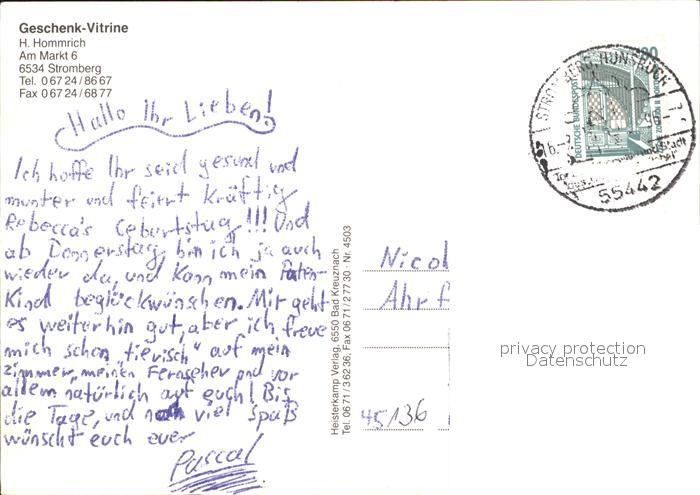 Geschenk-Vitrine
H. Hommrich
Am Markt 6
6534 Stromberg
Tel. 0 67 24 / 86 67
Fax 0 67 24 / 68 77
Hallo Ihr Lieben!
Ich hoffe Ihr seid gesund und
munter und feiert kräftig
Rebecca's Geburtstag!!! Und
ab Donnerstag, bin ich ja auch
wieder da, und kann mein Paten-
Kind beglückwünschen. Mir geht
es weiterhin gut, aber ich freue
mich schon "tierisch" auf mein
Zimmer, meinen Fernseher und vor
allem natürlich auf euch! Bis
die Tage, und noch viel Spaß
wünscht euch euer
Pascal
Heisterkamp Verlag, 6550 Bad Kreuznach
Tel. 0671 / 3 62 36, Fax 06 71 / 2 77 30 · Nr. 4503
Nicol
Ahrf
45136
privacy protection
Datenschutz
DEUTSCHE BUNDESPOST
STROMBERG, HUNSRÜCK
55442